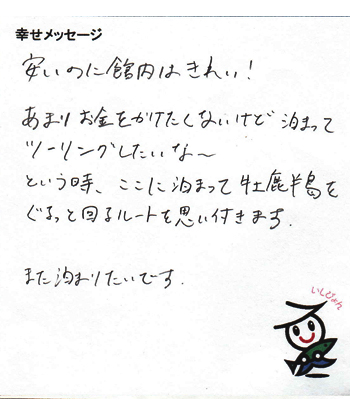 幸せメッセージ
安いのに館内はきれい!
あまりお金をかけたくないけど泊まって
ツーリングしたいな〜
という時、ここに泊まって牡鹿半島を
ぐるっと回るルートを思い付きます.
また泊まりたいです.
いしぴょん